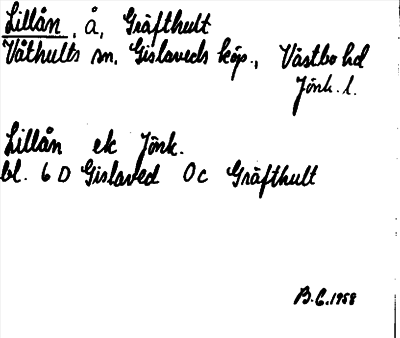 Lillån, å, Gräfthult
Våthults sn. Gislaveds köp., Västbo hd
Jönk. l.
Lillån ek Jönk.
bl. 6 D Gislaved Oc Gräfthult
B.C. 1958